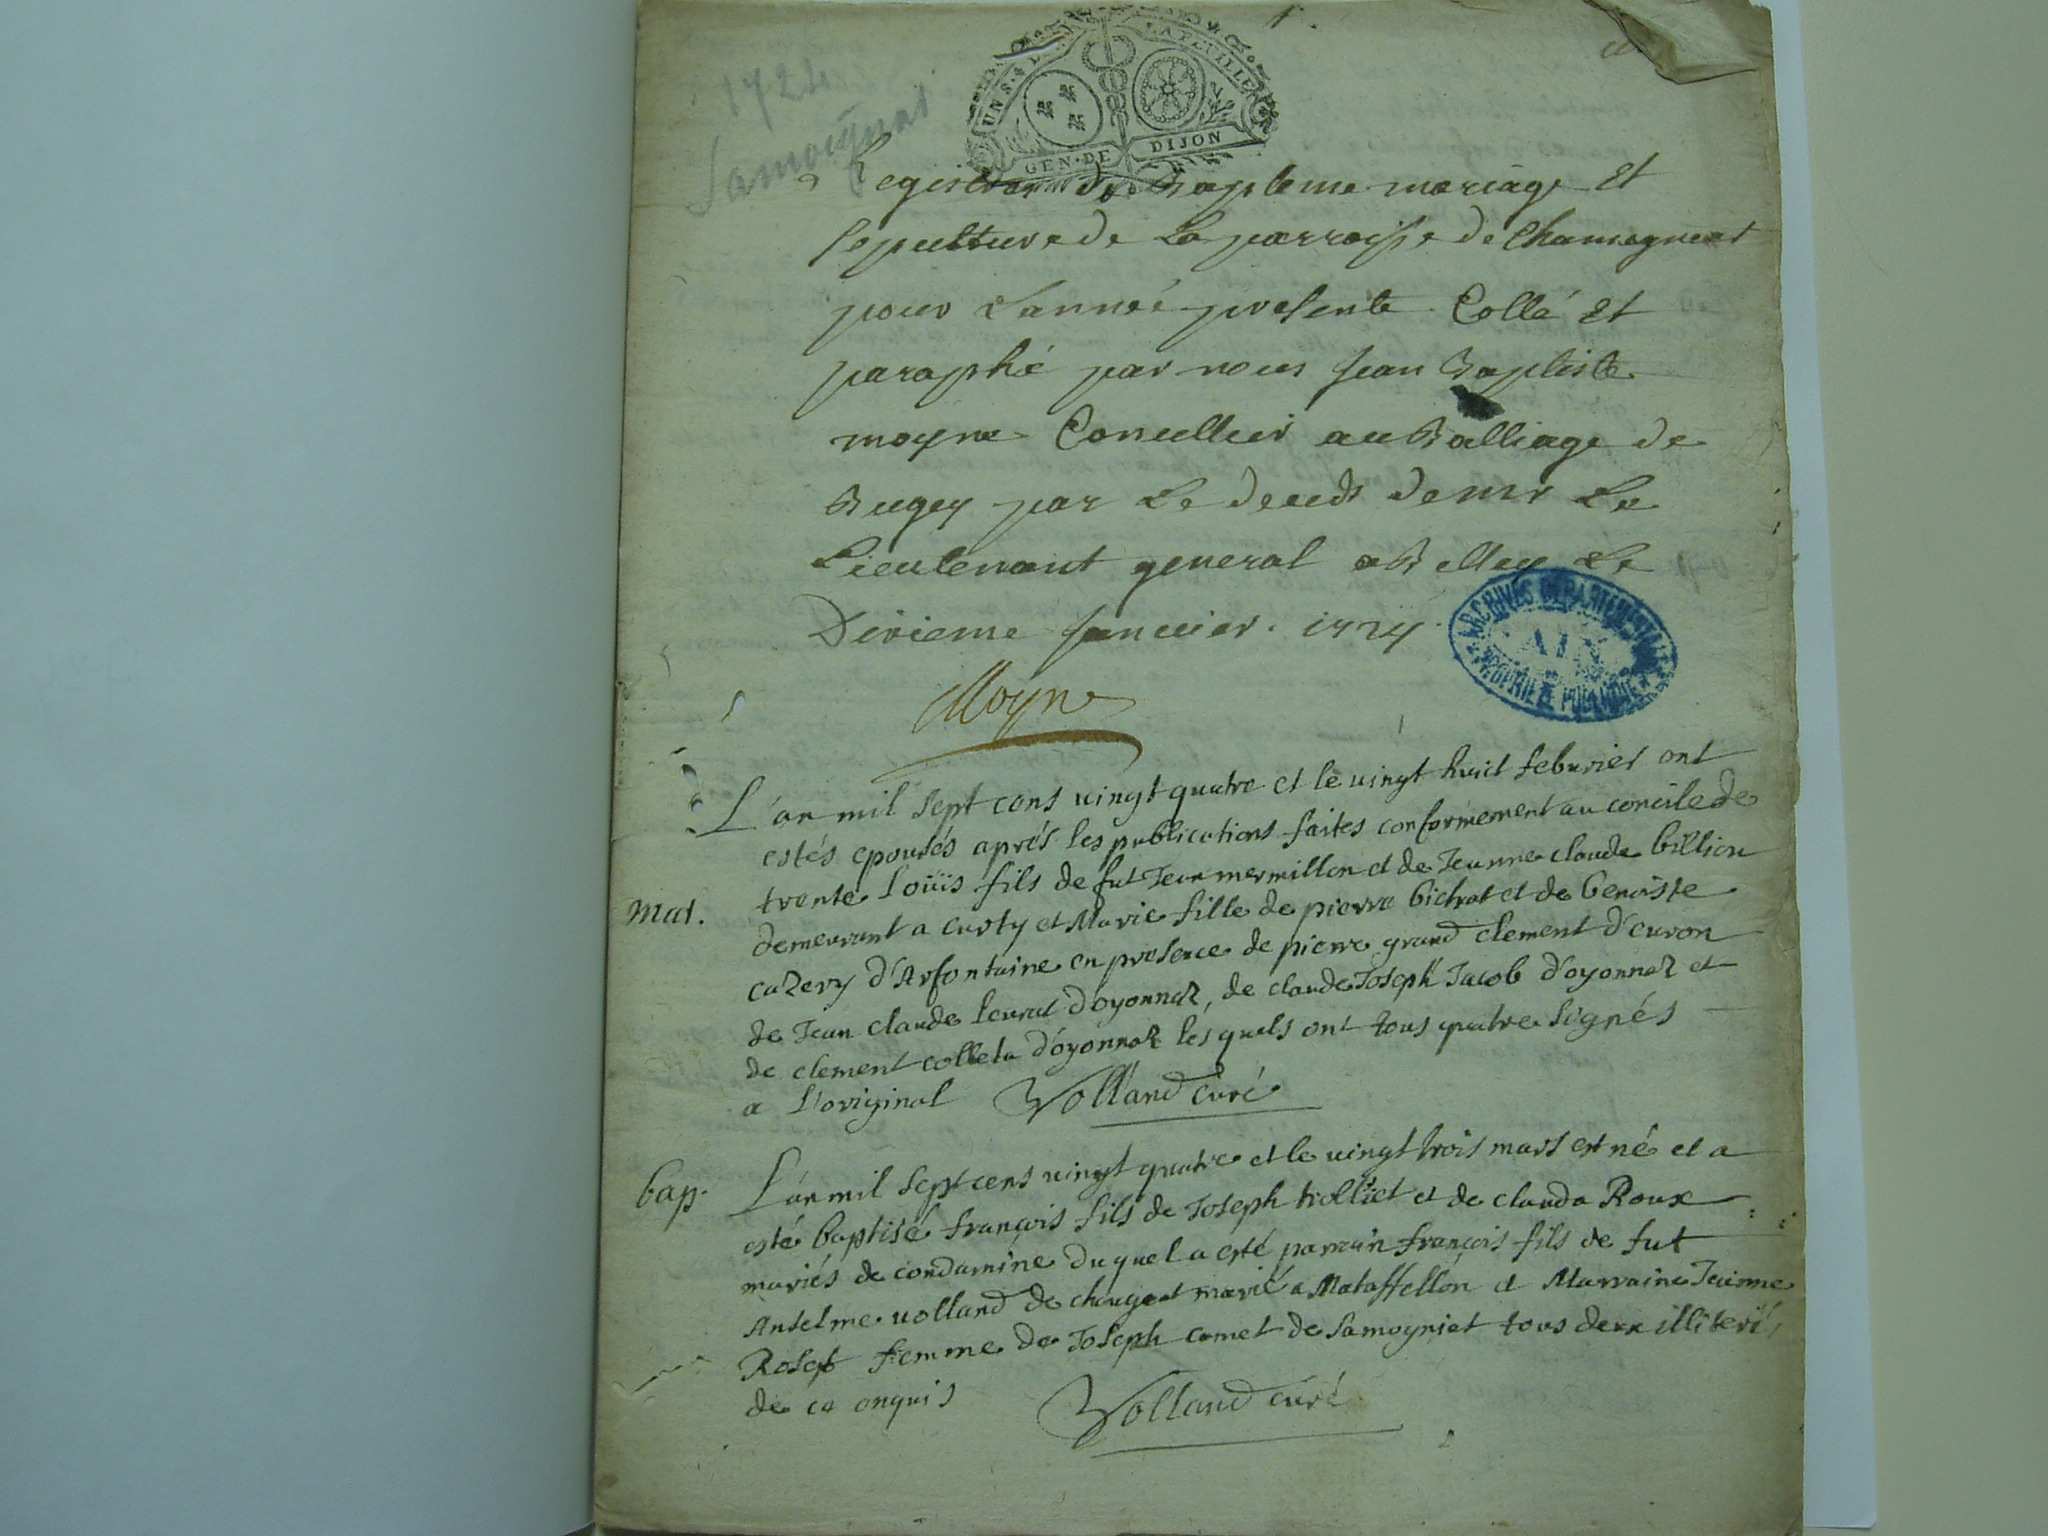 1724
Samoignat
UN S. 4 D. LA FEUILLE
GEN. DE DIJON
Registre de Bapteme mariage Et
sepulture de La parroisse de Chamognent
pour L'année presente Collé Et
paraphé par nous Jean Baptiste
moyne Conseiller au Balliage de
Bugey par Le deceds de mr Le
Lieutenant general a Belley Le
Dixieme Janvier 1724
Moyne
ARCHIVES DEPARTEMENTALES
AIN
PROPRIETE PUBLIQUE
L'an mil sept cens vingt quatre et le vingt huit febvrier ont
estés epousés aprés les publications faites conformement au concile de
mar. trente Loüis fils de fut Jean mermillon et de Jeanne claude billion
demeurant a Curty et Marie fille de pierre bichat et de benoiste
cuzery d'Arfontaine en presence de pierre grand clement d'euron
de Jean claude levrat d'oyonnaz, de claude Joseph Jacob d'oyonnaz et
de clement colleta d'oyonnaz les quels ont tous quatre signés
a l'original Volland curé
bap. L'an mil sept cens vingt quatre et le vingt trois mars est né et a
esté baptisé françois fils de Joseph tiolliet et de clauda Roux
mariés de condamine duquel a esté parrain françois fils de fut
Anselme volland de chougeat marié a Mataffellon et Marraine Jeanne
Roset femme de Joseph comet de samogniat tous deux illiterés
de ce enquis Volland curé